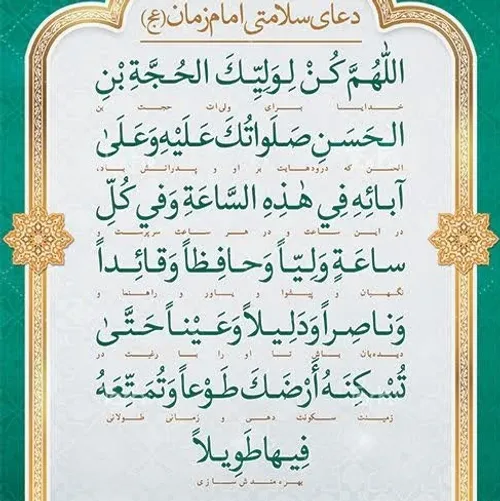 دعای سلامتی امام زمان (عج)
اللّٰهُمَّ كُنْ لِوَلِيِّكَ الحُجَّةِ بْنِ
خدایا برای ولی‌ات حجت بن
الحَسَنِ صَلَواتُكَ عَلَيْهِ وَعَلَىٰ
الحسن که درودهایت بر او و پدرانش باد،
آبائِهِ فِي هٰذِهِ السَّاعَةِ وَفي كُلِّ
در این ساعت و در هر ساعت سرپرست و
ساعَةٍ وَلِيّاً وَحافِظاً وَقائِداً
نگهبان و پیشوا و یاور و راهنما و
وَناصِراً وَدَلِيلاً وَعَيْناً حَتَّىٰ
دیده‌بان باش تا او را با رغبت در
تُسْكِنَهُ أَرْضَكَ طَوْعاً وَتُمَتِّعَهُ
زمینت سکونت دهی و زمانی طولانی
فِيها طَوِيلاً
بهره‌مندش سازی